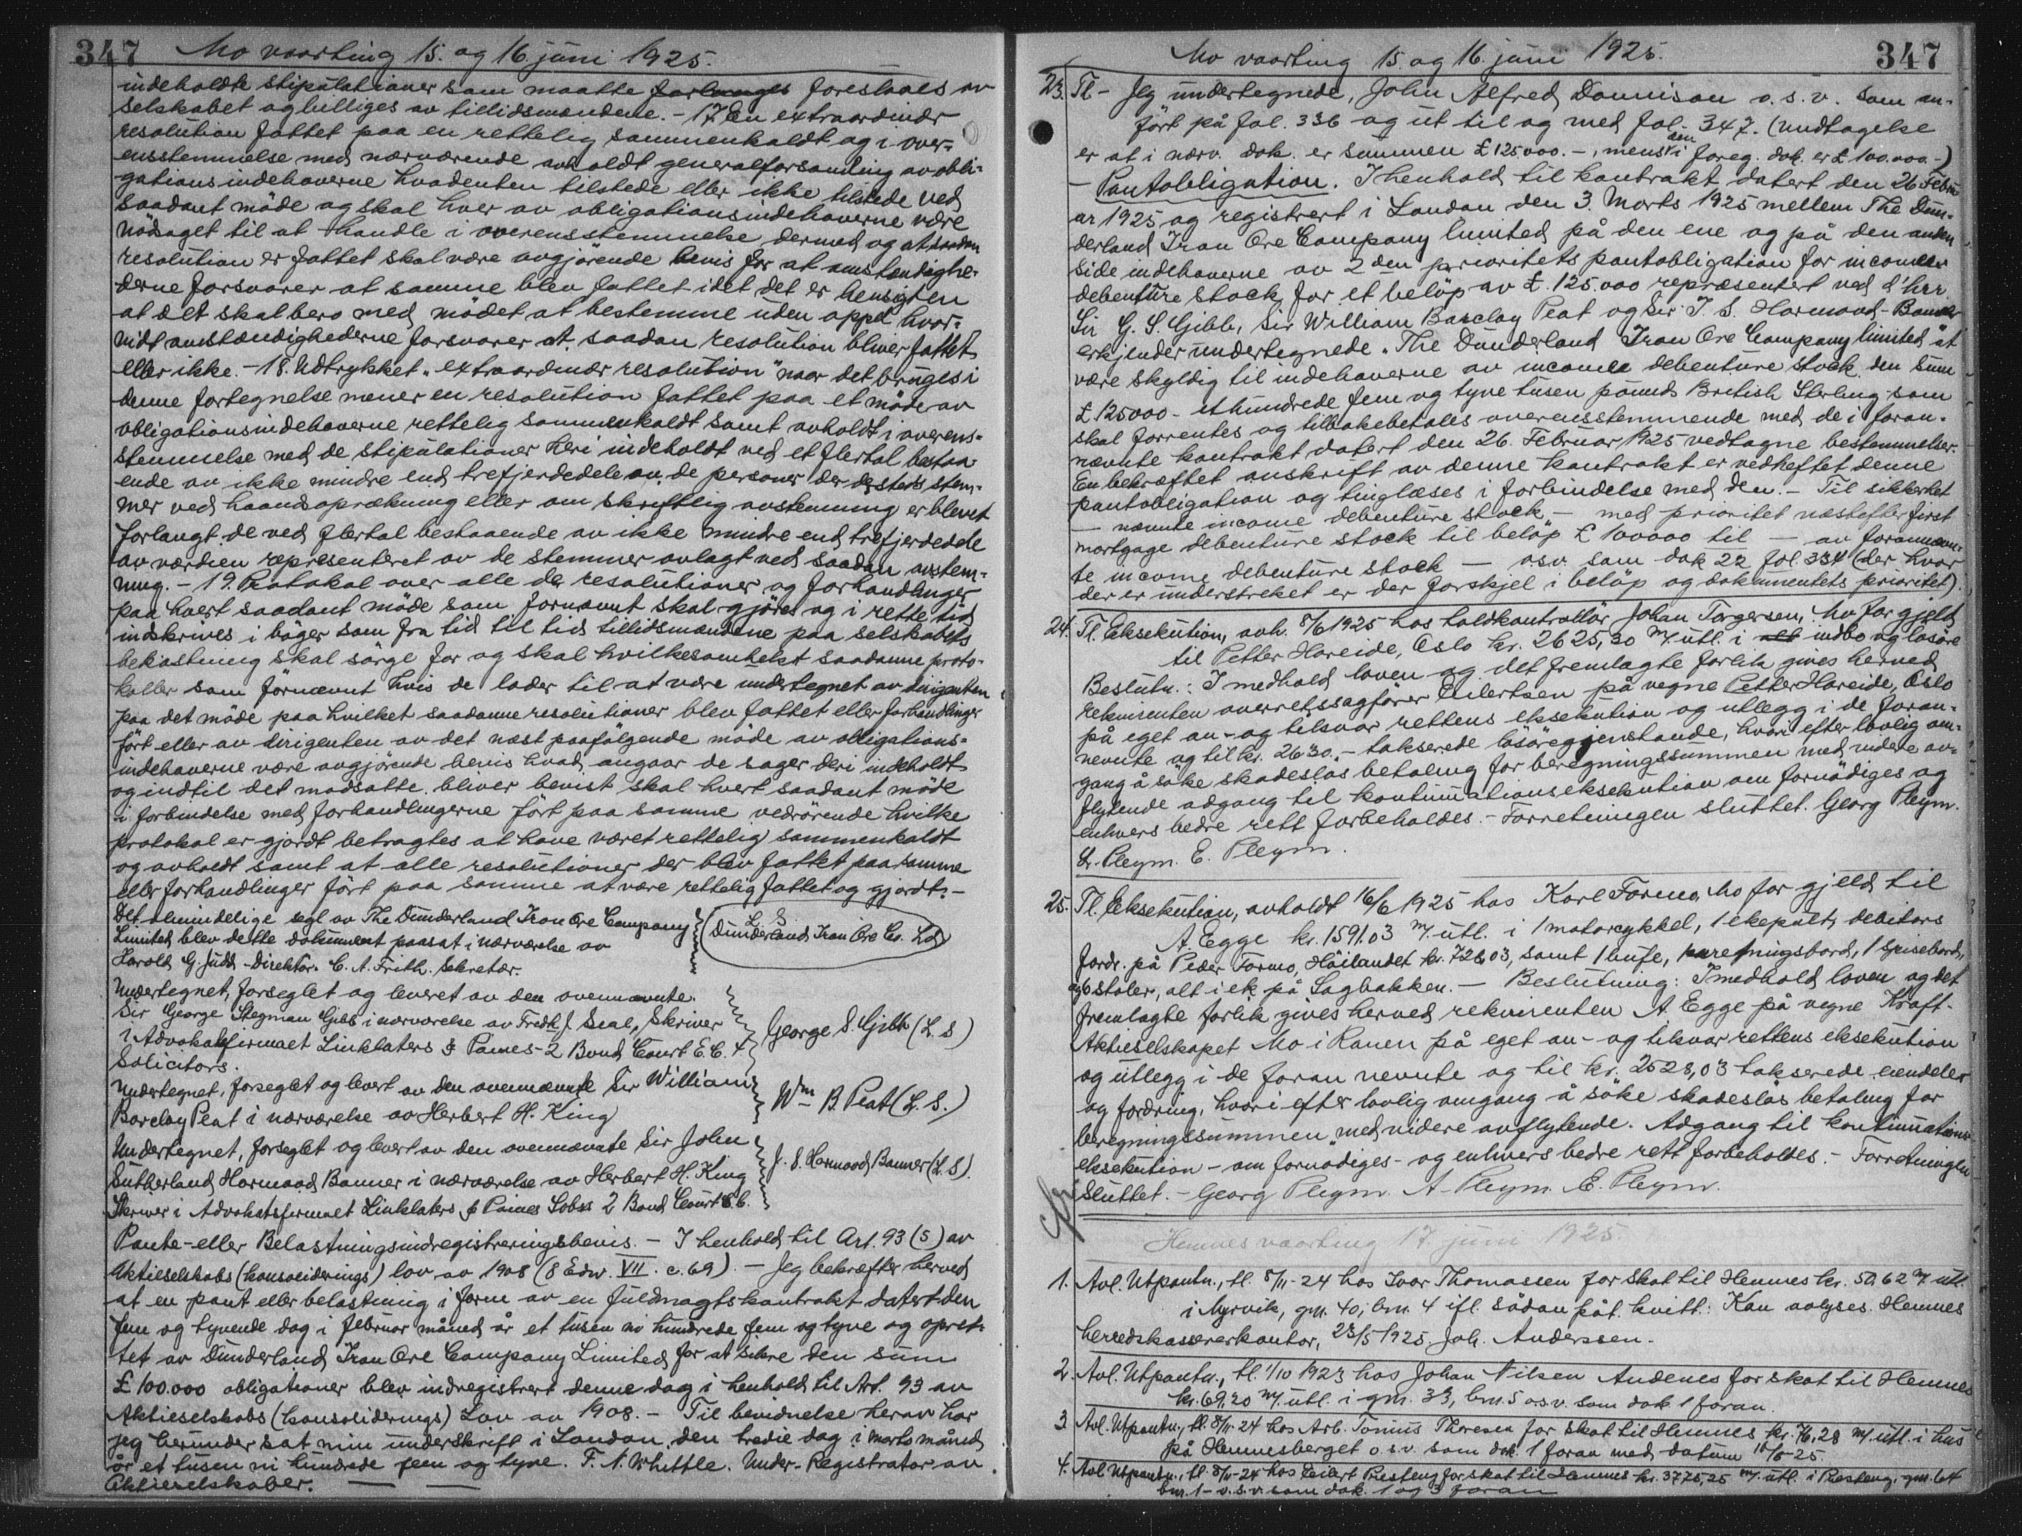 347 Mo vaarting 15. og 16. juni 1925.
indeholdte stipulationer som maatte forlanges foreslaaes av
selskabet og billiges av tillidsmændene. - 17. En extraordinær
resolution fattet paa en rettelig sammenkaldt og i over-
ensstemmelse med nærværende avholdt generalforsamling av obli-
gationsindehaverne hvadenten tilstede eller ikke tilstede ved
saadant møde og skal hver av obligationsindehaverne være
nødsaget til at handle i overensstemmelse dermed og at saadan
resolution er fattet skal være avgjørende bevis for at omstændighe-
derne forsvarer at samme blev fattet idet det er hensigten
at det skal bero med mødet at bestemme uden appel hvor-
vidt omstændighederne forsvarer at saadan resolution bliver fattet
eller ikke. - 18. Udtrykket "extraordinær resolution" naar det bruges i
denne fortegnelse mener en resolution fattet paa et møde av
obligationsindehaverne rettelig sammenkaldt samt avholdt i overens-
stemmelse med de stipulationer heri indeholdt ved et flertal bestaa-
ende av ikke mindre end trefjerdedele av de personer der steds stem-
mer ved haandsoprækning eller om skriftlig avstemning er blevet
forlangt de ved flertal bestaaende av ikke mindre end trefjerdedele
av værdien representeret av de stemmer avlagt ved saadan avstem-
ning. - 19. Protokol over alle de resolutioner og forhandlinger
paa hvert saadant møde som fornævnt skal gjøres og i rette tid
indskrives i bøger som fra tid til tid tillidsmændene paa selskabets
bekostning skal sørge for og skal hvilkesomhelst saadanne proto-
koller som fornævnt hvis de lader til at være undertegnet av dirigenten
paa det møde paa hvilket saadanne resolutioner blev fattet eller forhandlinger
ført eller av dirigenten av det næst paafølgende møde av obligations-
indehaverne være avgjørende bevis hvad angaar de sager deri indeholdt
og indtil det modsatte bliver bevist skal hvert saadant møde
i forbindelse med forhandlingerne ført paa samme vedrørende hvilke
protokol er gjordt betragtes at have været rettelig sammenkaldt
og avholdt samt at alle resolutioner der blev fattet paa samme
eller forhandlinger ført paa samme at være rettelig fattet og gjordt. -
Det almindelige segl av The Dunderland Iron Ore Company
Limited blev dette dokument paasat i nærværelse av
Harold G. Judd - Direktør. C. A. Frith. Sekretær.
L S
Dunderland Iron Ore Co. Ltd
Undertegnet, forseglet og leveret av den ovennævnte
Sir George Stegman Gibb i nærværelse av Fredk J. Seal, Skriver
i Advokatfirmaet Linklaters & Paines - 2 Bond Court E.C. 4
Solicitors.
George S. Gibb (L. S)
Undertegnet, forseglet og levert av den ovennævnte Sir William
Barclay Peat i nærværelse av Herbert H. King
Wm B. Peat (L. S.)
Undertegnet, forseglet og levert av den ovennævnte Sir John
Sutherland Harmood Banner i nærværelse av Herbert H. King
Skriver i Advokatfirmaet Linklaters & Paines 2 Bond Court E.C.
J. S. Harmood Banner (L. S).
Pante- eller Belastningsindregistreringsbevis. - I henhold til Art. 93 (5) av
Aktieselskabs (konsoliderings) lov av 1908 (8 Edw. VII. c. 69). - Jeg bekræfter herved
at en pant eller belastning i form av en fuldmagtskontrakt datert den
fem og tyvende dag i februar måned år et tusen ni hundrede fem og tyve og opret-
tet av Dunderland Iron Ore Company Limited for at sikre den sum
£ 100.000 obligationer blev indregistrert denne dag i henhold til Art. 93 av
Aktieselskabs (konsoliderings) Lov av 1908. - Til bevidnelse herav har
jeg herunder sat min underskrift i London den tredie dag i marts måned
år et tusen ni hundrede fem og tyve. F. N. Whittle. Under-Registrator av
Aktieselskaber.
Mo vaarting 15. og 16. juni 1925. 347
23. Tl - Jeg undertegnede, John Alfred Dannison o.s.v. som an-
ført på fol. 336 og ut til og med fol. 347. (Undtagelse
er at i nærv. dok. er summen £ 125000.-, mens den i foreg. dok. er £ 100.000.-)
- Pantobligation. I henhold til kontrakt datert den 26 Febru-
ar 1925 og registrert i London den 3. Marts 1925 mellem The Dun-
derland Iron Ore Company limited på den ene og på den anden
side indehaverne av 2den prioritets pantobligation for income
debenture stock for et beløp av £. 125.000 repræsentert ved d'hrr
Sir G. S. Gibb, Sir William Barclay Peat og Sir J. S. Harmood-Banner
erkjender undertegnede "The Dunderland Iron Ore Company limited" at
være skyldig til indehaverne av income debenture stock den sum
£ 125000 - ethundrede fem og tyve tusen pounds British Sterling som
skal forrentes og tilbakebetales overensstemmende med de i foran-
nævnte kontrakt datert den 26. Februar 1925 vedtagne bestemmelser.
En bekræftet avskrift av denne kontrakt er vedheftet denne
pantobligation og tinglæses i forbindelse med den. - Til sikkerhet
- nævnte income debenture stock - med prioritet næstefter first
mortgage debenture stock til beløp £ 100000 til - av forannævn-
te income debenture stock - osv. som dok 22 fol 334 (der hvor
der er understreket er der forskjel i beløp og dokumentets prioritet).
24. Tl. Eksekution, avh. 8/6 1925 hos toldkontrollør Johan Torgersen, Mo for gjeld
til Petter Hareide, Oslo kr. 2625,30 m/ utl. i indbo og løsøre
Beslutn.: I medhold loven og det fremlagte forlik gives herved
rekvirenten overretssagfører Eilertsen på vegne Petter Hareide, Oslo
på eget an- og tilsvar rettens eksekution og utlegg i de foran-
nevnte og til kr. 2630.- takserede løsøregjenstande, hvori efter lovlig om-
gang å søke skadesløs betaling for beregningssummen med videre av-
flytende adgang til kontinuationseksekution om fornødiges og
enhvers bedre rett forbeholdes. - Forretningen sluttet. Georg Pleym.
A. Pleym. E. Pleym.
25. Tl. Eksekution, avholdt 16/6 1925 hos Karl Formo, Mo for gjeld til
A. Egge kr. 1591.03 m/ utl. i 1 motorcykkel, 1 ekepult, debitors
fordr. på Peder Formo, Høilandet kr. 728,03, samt 1 bufe, 1 anretningsbord, 1 spisebord,
og 6 stoler, alt i ek på Sagbakken. - Beslutning: I medhold loven og det
fremlagte forlik gives herved rekvirenten A. Egge på vegne Kraft-
Aktieselskapet Mo i Ranen på eget an- og tilsvar rettens eksekution
og utlegg i de foran nevnte og til kr. 2528,03 takserede eiendeler
og fordring, hvori efter lovlig omgang å søke skadesløs betaling for
beregningssummen med videre avflytende. Adgang til kontinuations-
eksekution - om fornødiges - og enhvers bedre rett forbeholdes. - Forretningen
sluttet. - Georg Pleym. A. Pleym. E. Pleym.
Hemnes vaarting 17. juni 1925.
1. Avl. Utpantn., tl. 8/11-24 hos Ivar Thomassen for skat til Hemnes kr. 50,62 m/ utl.
i Nyrvik, gnr. 40, bnr. 4 ifl. sådan påt. kvitt: Kan avlyses. Hemnes
herredskassererkontor, 23/5 1925 Joh. Anderssen.
2. Avl. Utpantn., tl. 1/10 1923 hos Johan Nilsen Andenes for skat til Hemnes
kr. 69,20 m/ utl. i gnr. 33, bnr. 5 o.s.v. som dok 1 foran.
3. Avl. Utpantn., tl. 8/11-24 hos Arb. Tomas Thoresen for skat til Hemnes kr. 76.28 m/ utl. i hus
på Hemnesberget o.s.v. som dok. 1 foran med datum 18/5-25.
4. Avl Utpantn., tl. 8/11-24 hos Leilert Presteng for skat til Hemnes kr. 3775,25 m/ utl. i Presteng, gnr. 64
bnr. 1 - o.s.v. som dok. 1 og 3 foran